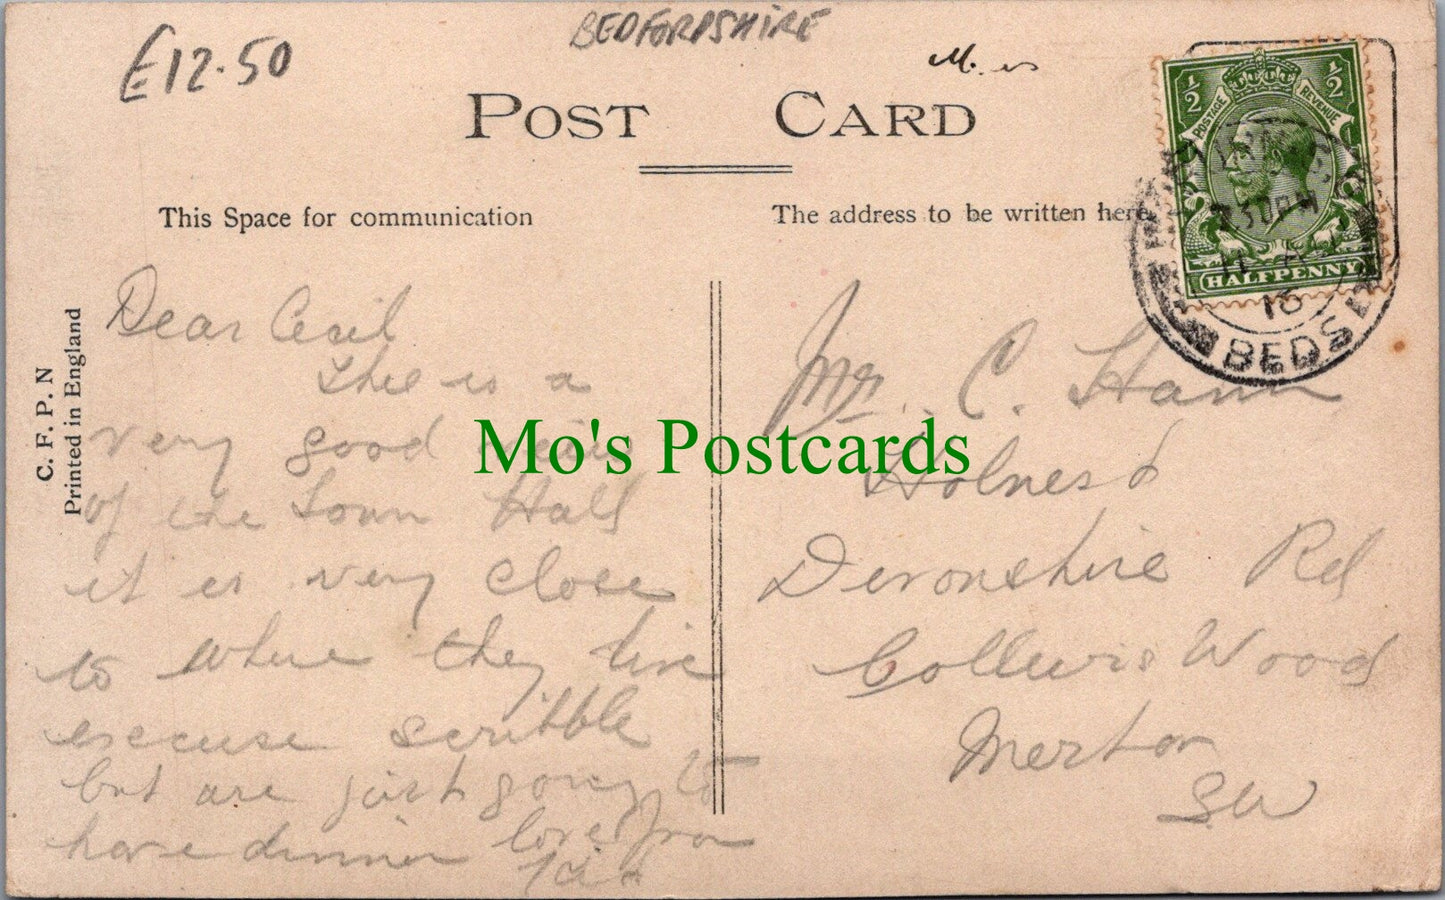 £12.50
BEDFORDSHIRE
POST CARD
This Space for communication
The address to be written here
½ ½
POSTAGE REVENUE
HALFPENNY
30PM
BEDS
C. F. P. N
Printed in England
Dear Cecil
This is a
very good view
of the Town Hall
it is very close
to where they live
excuse scribble
but are just going to
have dinner love from
Mr. C. Hann
Holnest
Devonshire Rd
Colliers Wood
Merton
S.W
Mo's Postcards